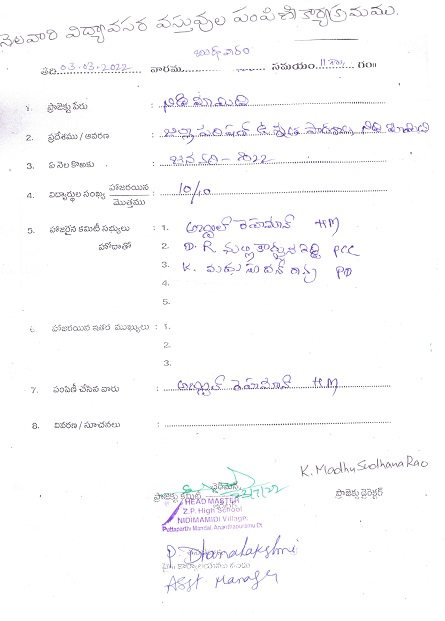 నెలవారి విద్యావసర వస్తువుల పంపిణీ కార్యక్రమము.
తేది. 03.03.2022 వారము బుధవారం సమయం. 11 గం॥
1. ప్రాజెక్టు పేరు : నిడిమామిడి
2. ప్రదేశము / ఆవరణ : జిల్లా పరిషత్ ఉన్నత పాఠశాల, నిడిమామిడి
3. ఏ నెల కొఱకు : జనవరి - 2022
4. విద్యార్థుల సంఖ్య హాజరయిన / మొత్తము : 10/10
5. హాజరైన కమిటీ సభ్యులు : 1. అబ్దుల్ రెహమాన్ HM
హోదాతో 2. D. R మల్లికార్జున రెడ్డి PCC
3. K. మధుసూదన్ రావు PD
4.
5.
6. హాజరయిన ఇతర ముఖ్యులు : 1.
2.
3.
7. పంపిణీ చేసిన వారు : అబ్దుల్ రెహమాన్ HM
8. వివరణ / సూచనలు :
K. Madhu Sudhana Rao
ఛైర్మెన్
ప్రాజెక్టు కమిటీ
ప్రాజెక్టు డైరెక్టర్
HEAD MASTER
Z.P. High School
NIDIMAMIDI Village,
Puttaparthi Mandal, Ananthapuramu Dt.
P. Dhanalakshmi
Asst Manager